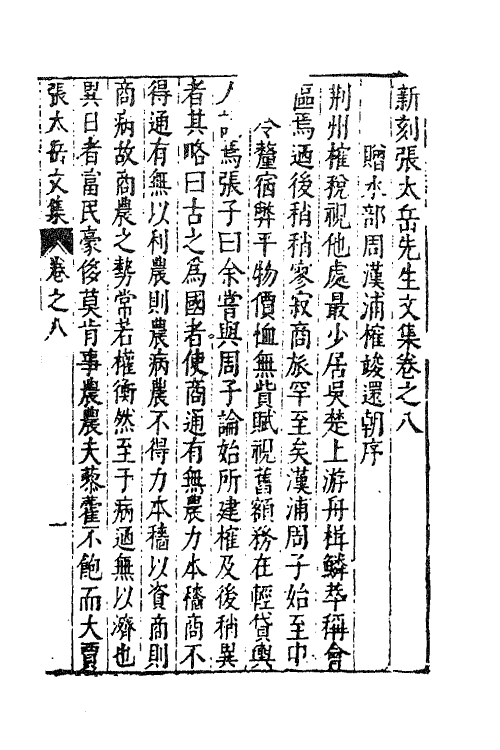 新刻張太岳先生文集卷之八
贈水部周漢浦榷竣還朝序
荆州榷稅視他處最少居吳楚上游舟楫鱗萃稱會
區焉迺後稍稍寥寂商旅罕至矣漢浦周子始至中
令釐宿弊平物價恤無貲賦視舊額務在輕貸輿
人 焉張子曰余嘗與周子論始所建榷及後稍異
者其略曰古之爲國者使商通有無農力本穡商不
得通有無以利農則農病農不得力本穡以資商則
商病故商農之勢常若權衡然至于病適無以濟也
異日者富民豪侈莫肯事農農夫藜藿不飽而大賈
張太岳文集 卷之八 一